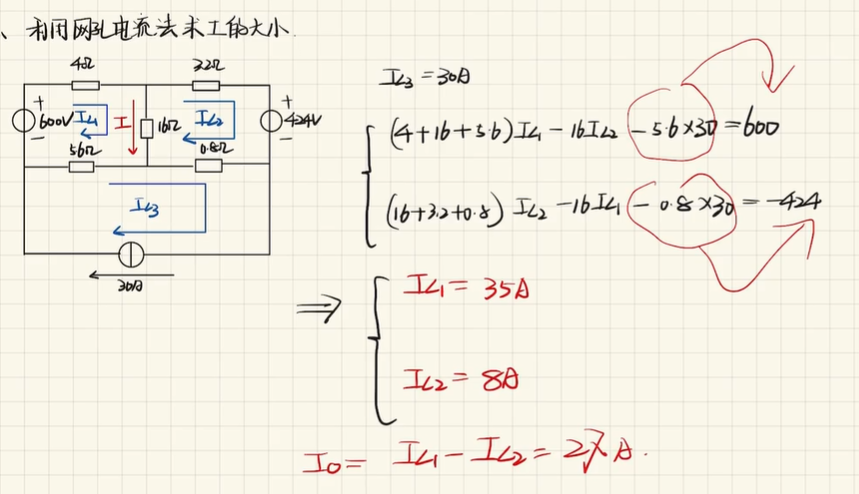 、利用网孔电流法求I的大小.
4Ω 3.2Ω
+ 600V − IL1 I 16Ω IL2 + 424V −
5.6Ω 0.8Ω
IL3
30A
IL3 = 30A
(4+16+5.6)IL1 − 16IL2 − 5.6×30 = 600
(16+3.2+0.8)IL2 − 16IL1 − 0.8×30 = −424
⇒ IL1 = 35A
IL2 = 8A
I0 = IL1 − IL2 = 27A.